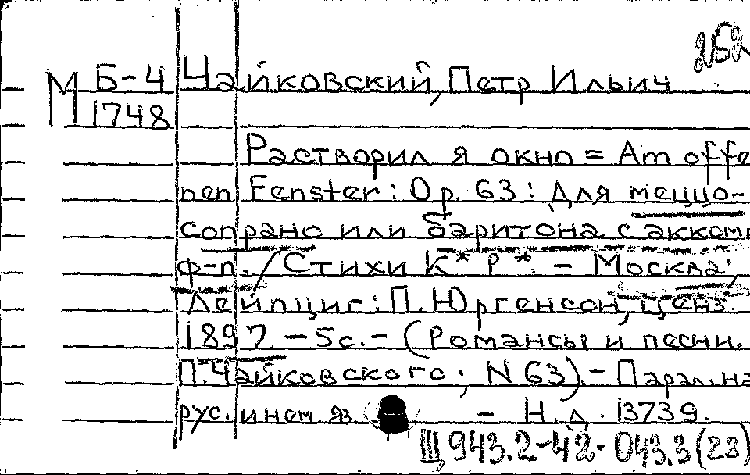 252
М Б-4 Чайковский, Петр Ильич
1748
Растворил я окно = Am offe
nen Fenster: Op. 63: Для меццо-
сопрано или баритона с акком
ф-п. / Стихи К* Р*. - Москва;
Лейпциг: П. Юргенсон, ценз.
1897. - 5с. - (Романсы и песни
П. Чайковского; N 63). - Парал. на
рус. и нем яз - Н.д. 13739.
Щ 943.2-42-043.3(23)